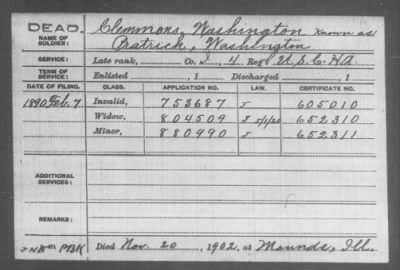 DEAD.
NAME OF SOLDIER: Clemmons, Washington known as
Pratrick, Washington
SERVICE: Late rank, Co. I, 4 Reg't U.S.C.H.A.
TERM OF SERVICE: Enlisted , 1 Discharged , 1
DATE OF FILING. CLASS. APPLICATION NO. LAW. CERTIFICATE NO.
1890 Feb. 7 Invalid, 753687 J 605010
Widow, 804509 J 652310
Minor, 880990 J 652311
ADDITIONAL SERVICES:
REMARKS:
Died Nov. 20, 1902, at Mounds, Ill.